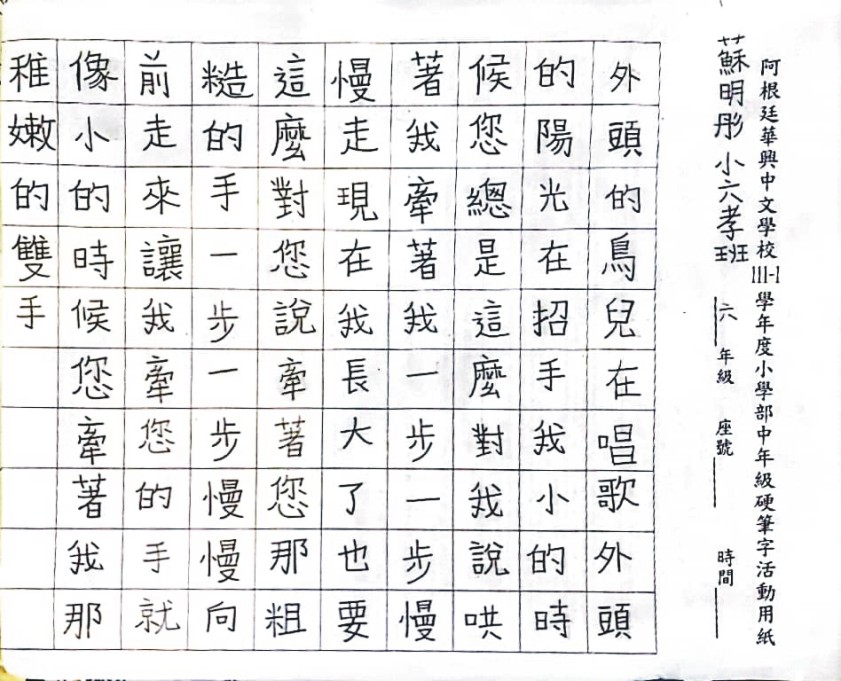 阿根廷華興中文學校111-1學年度小學部中年級硬筆字活動用紙
蘇明彤 小六孝班 六 年級 座號 時間
外頭的鳥兒在唱歌外頭
的陽光在招手我小的時
候您總是這麼對我說哄
著我牽著我一步一步慢
慢走現在我長大了也要
這麼對您說牽著您那粗
糙的手一步一步慢慢向
前走來讓我牽您的手就
像小的時候您牽著我那
稚嫩的雙手